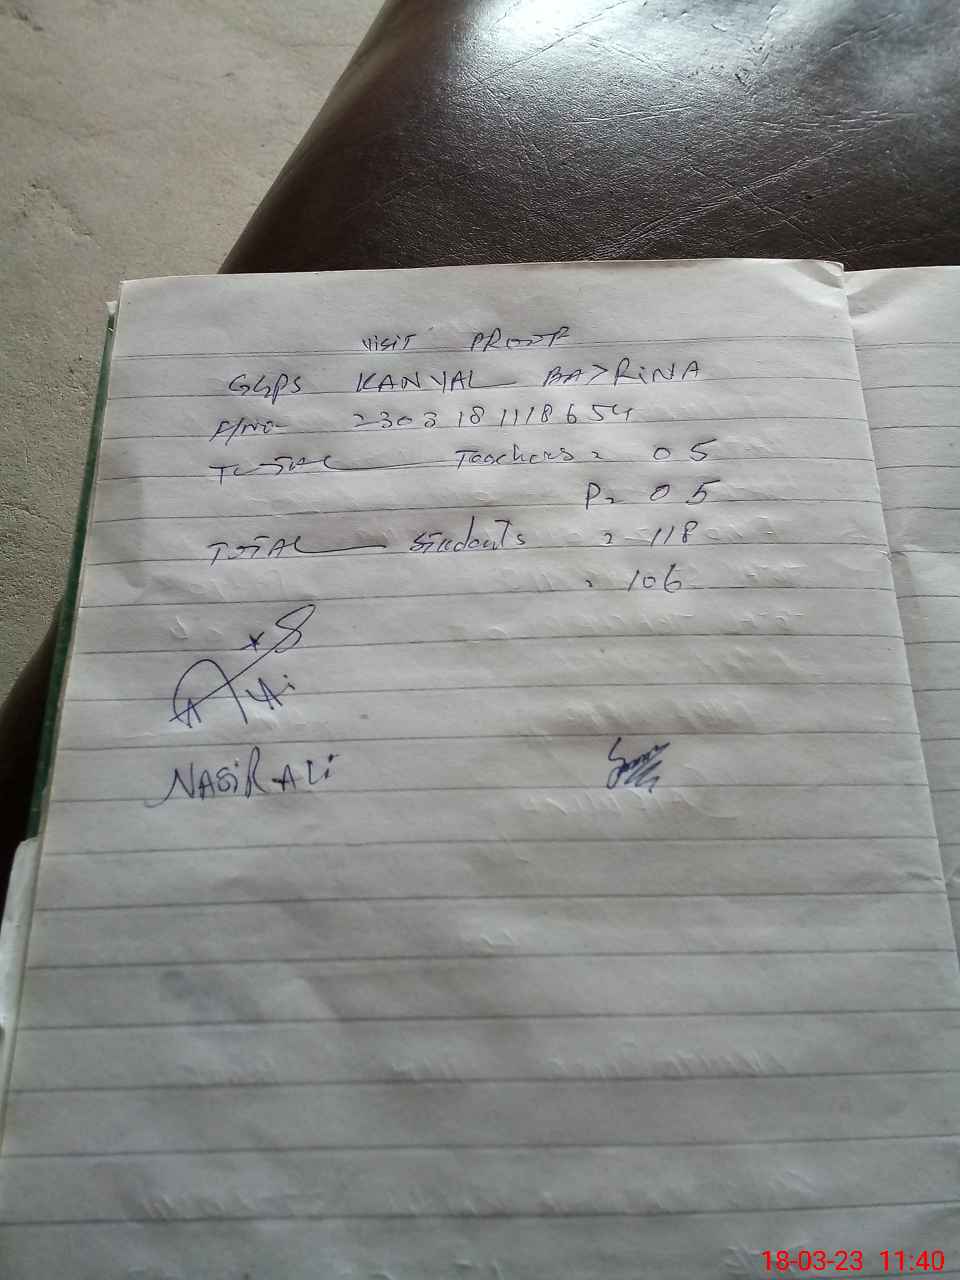 Visit PROOF
GGPS KANYAL BAZRiNA
F/No- 2303181118654
TOTAL Teachers = 05
P= 05
TOTAL Students = 118
= 106
NASiR ALi
18-03-23 11:40